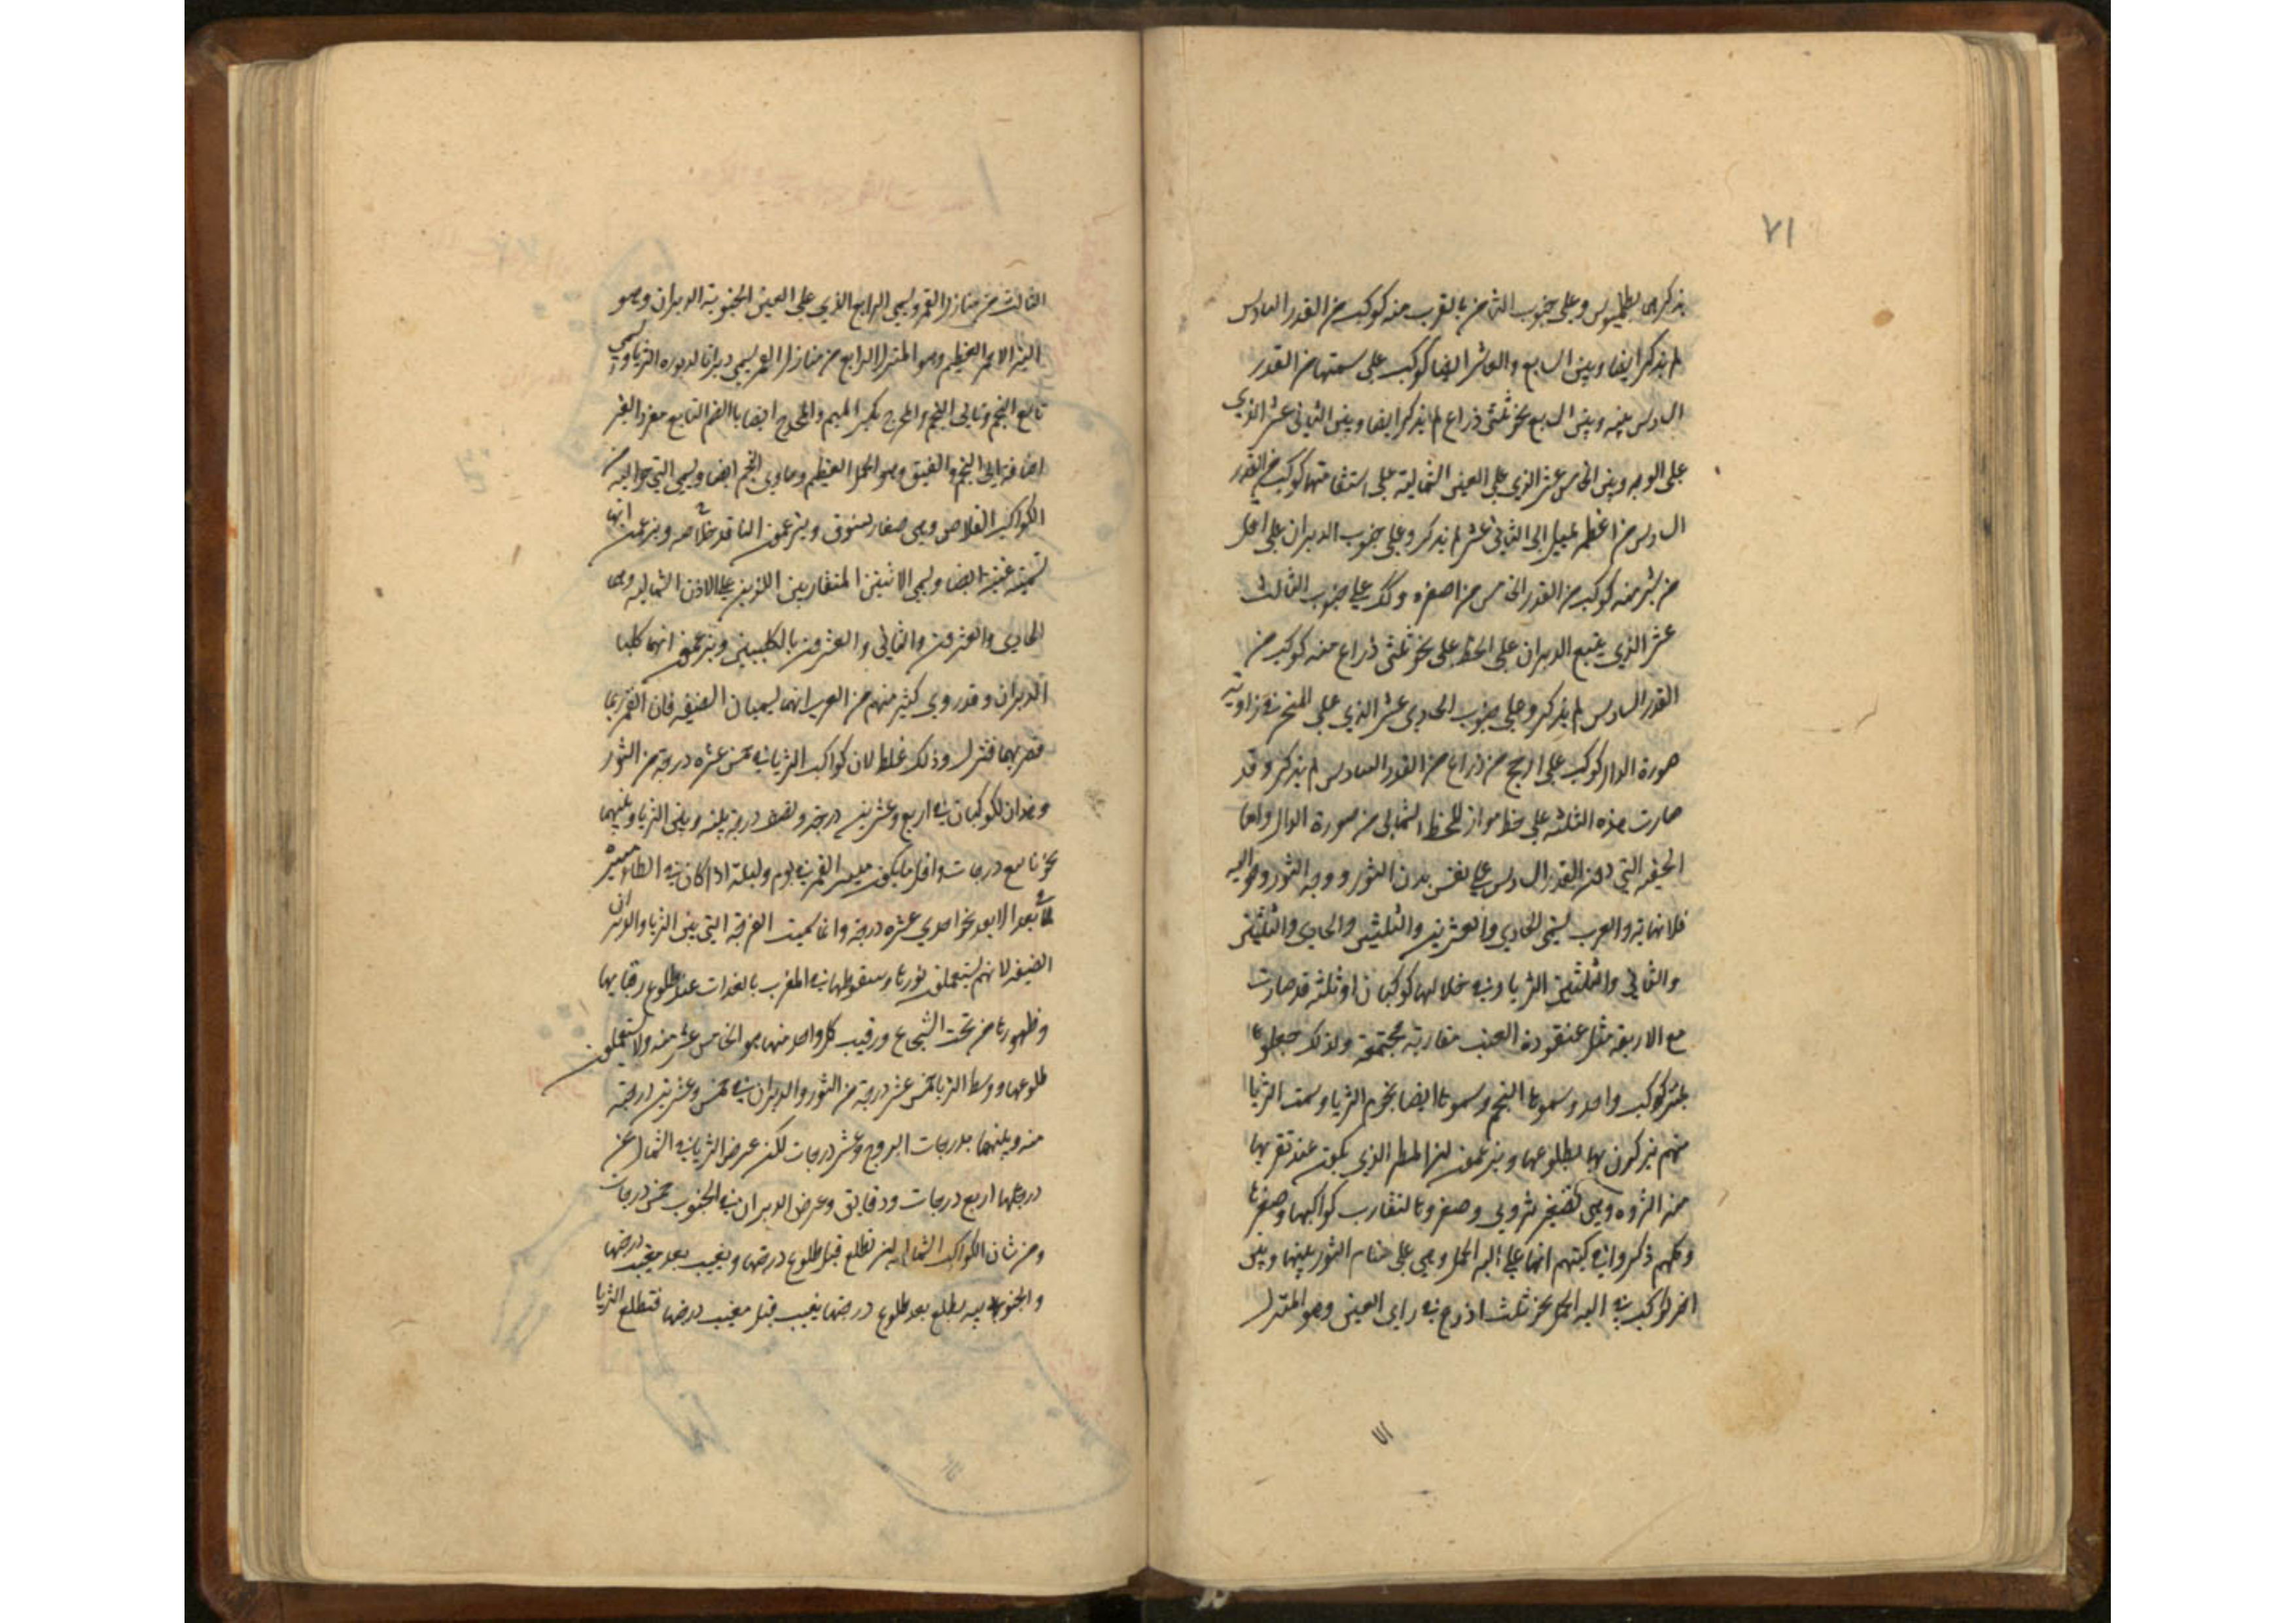 ٧١
يذكره بطلميوس وعلى جنوب الثامن بالقرب منه كوكب من القدر السادس
لم يذكر ايضا وبين السابع والعاشر ايضا كوكب على سمتها من القدر
السادس بينه وبين السابع نحو ثلثى ذراع لم يذكر ايضا وبين الثاني عشر الذي
على الوجه وبين الخامس عشر الذي على العين الشمالية على استقامتها كوكب من القدر
السادس من اعظمه يميل الى الثاني عشر لم يذكر وعلى جنوب الدبران على اقل
من شبر منه كوكب من القدر الخامس من اصغره وكك على جنوب الثالث
عشر الذي يتبع الدبران على الخط على نحو ثلثى ذراع منه كوكب من
القدر السادس لم يذكر وعلى جنوب الحادي عشر الذي على المنخر في زاوية
صورة الدال كوكب على ارجح من ذراع من القدر السادس لم يذكر وقد
صارت هذه الثلثة على خط مواز للخط الشمالي من صورة الدال واما
الخفية التي دون القدر السادس على نفس بدن الثور ووجه الثور وحواليه
فلا نهاية والعرب تسمى الحادي والعشرين والثلثين والحادي والثلثين
والثاني والثلثين الثريا وفي خلالها كوكبان او ثلثة قد صارت
مع الاربعة مثل عنقود العنب متقاربة مجتمعة ولذلك جعلوها
بمنزلة كوكب واحد وسموها النجم وسموها ايضا نجوم الثريا وسميت الثريا
منهم يتبركون بها بطلوعها ويزعمون ان المطر الذي يكون عند نوءها
منه الثروة وهي تصغير ثروى وصغروها لتقارب كواكبها وصغرها
وكلهم ذكروا في كتبهم انها على الية الحمل وهي على سنام الثور بينها وبين
اخر كوكب في الية الحمل نحو ثلث اذرع في راى العين وهو المنزل
٧١
الثالث من منازل القمر ويسمى الرابع الذي على العين الجنوبية الدبران وهو
النير الاحمر العظيم وهو المنزل الرابع من منازل القمر يسمى دبرانا لدبوره الثريا ويسمى
تابع النجم وتالى النجم والمجدح بكسر الميم والمجدح ايضا بالضم التابع مفردا بغير
اضافة الى النجم والفنيق وهو الجمل العظيم وحادي النجم ايضا ويسمى التي حواليه من
الكواكب القلاص وهي صغار النوق ويزعمون انها قلاصه ويزعمون انها
تسمى غنيمة ايضا ويسمى الاثنين المتقاربين اللذين على الاذن الشمالية وهما
الحادي والعشرون والثاني والعشرون بالكلبين ويزعمون انهما كلبا
الدبران وقد روي كثير منهم من العرب انهما يسميان الضيقة فان القمر ربما
قصر بهما فنزل وذلك غلط لان كواكب الثريا في خمس عشرة درجة من الثور
وهذان الكوكبان في اربع وعشرين درجة ونصف درجة منه وبين الثريا وبينهما
نحو تسع درجات واقل ما يكون مسير القمر في يوم وليلة اذا كان في ابطا مسيره
في بعد الابعد نحو احدي عشرة درجة وانما سميت الفرجة التي بين الثريا والدبران
الضيقة لانهم يستعملون نوءها وسقوطها في المغرب بالغدوات عند طلوع رقبائها
وظهورها من تحت الشعاع ورقيب كل واحد منها هو الخامس عشر منه ولا يستعملون
طلوعها ووسط الثريا خمس عشر درجة من الثور والدبران في خمس وعشرين درجة
منه وبينهما بدرجات البروج عشر درجات لكن عرض الثريا في الشمال عن
درجتها اربع درجات ودقايق وعرض الدبران في الجنوب خمس درجات
ومن شان الكواكب الشمالية ان تطلع قبل طلوع درجتها ويغيب بعد مغيب درجتها
والجنوبية يطلع بعد طلوع درجتها ويغيب قبل مغيب درجتها فتطلع الثريا